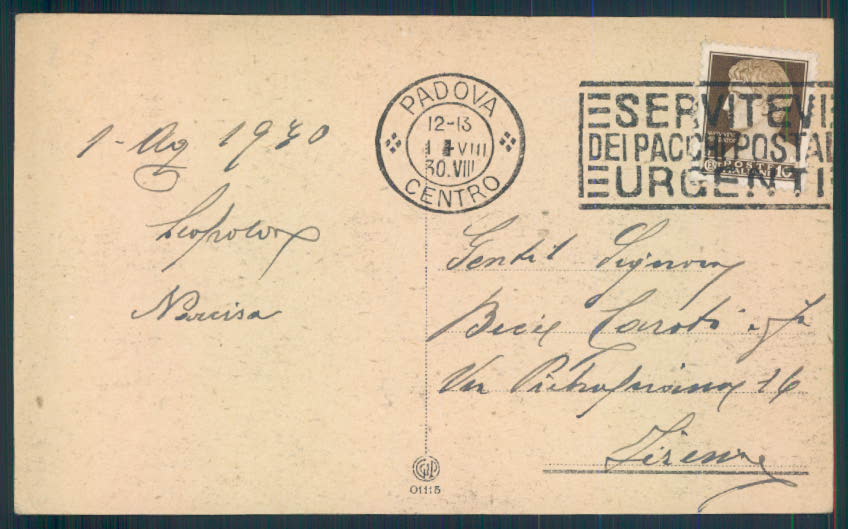 1-Ag 1930
Leopoldo
Narcisa
PADOVA
12-13
1 VIII
30.VIII
CENTRO
SERVITEVI
DEI PACCHI POSTAL
URGENTI
POSTE
Gentil Signora
Becie Caroti
Via 16
Firenze
01115